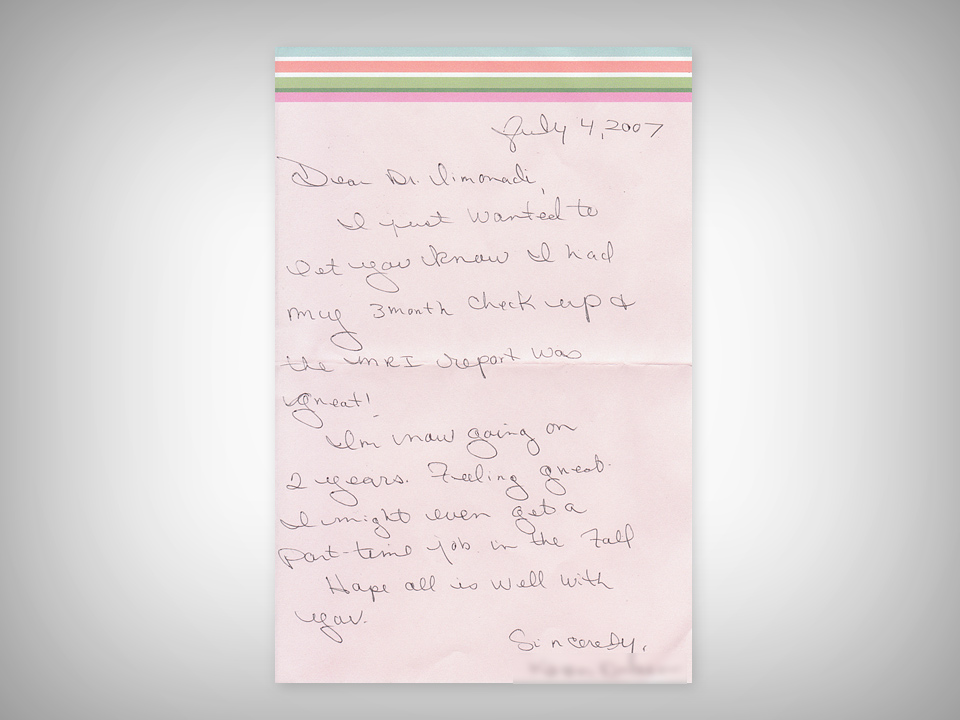 July 4, 2007
Dear Dr. Limonadi,
I just wanted to
let you know I had
my 3 month check up &
the MRI report was
great!
I'm now going on
2 years. Feeling great.
I might even get a
part-time job in the Fall
Hope all is well with
you.
Sincerely,